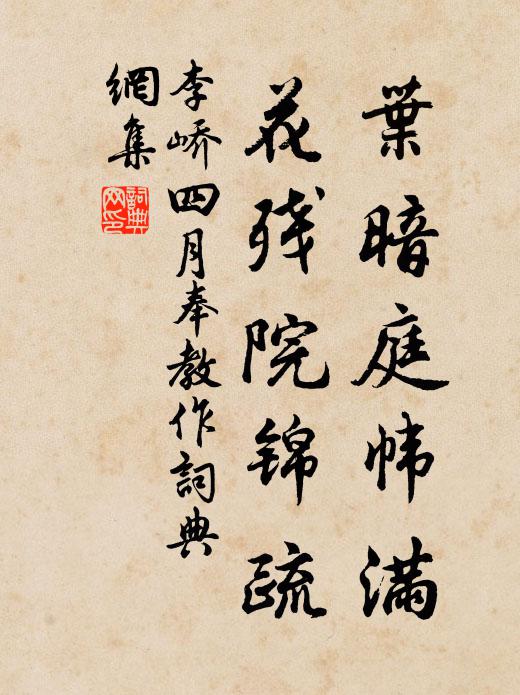 葉暗庭帏滿
花残院锦疏
李峤四月奉教作詞典
網集
詞典網印